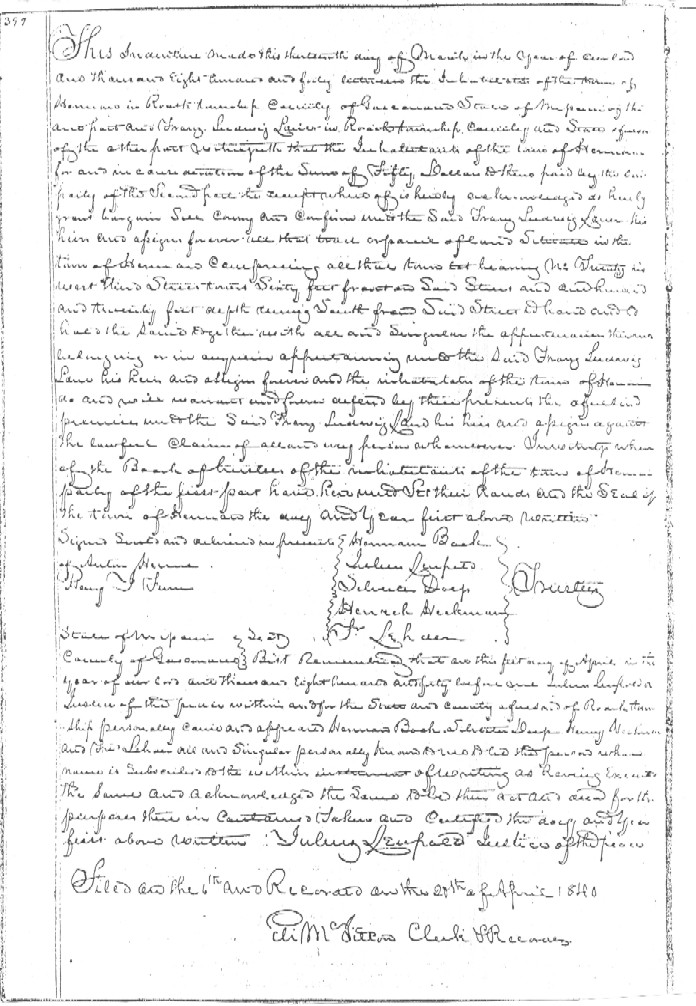 397
This Indenture made this thirteenth day of March in the Year of our Lord
one thousand Eight hundred and forty between the Inhabitants of the town of
Hermann in Roark township County of Gasconade State of Missouri of the
one part and Franz Ludwig Lauer in Roark township County and State aforesaid
of the other part Witnesseth that the Inhabitants of the town of Hermann
for and in consideration of the Sum of Fifty Dollars to them paid by the said
party of the Second part the receipt whereof is hereby acknowledged do hereby
grant bargain Sell Convey and Confirm unto the Said Franz Ludwig Lauer his
heirs and assigns forever all that tract or parcel of land Situate in the
town of Hermann Comprising all that town lot bearing No Twenty in
West third Street Sixty feet front on Said Street and one hundred
and twenty feet depth South from Said Street To have and to
hold the Same together with all and Singular the appurtenances thereto
belonging or in anywise appertaining unto the Said Franz Ludwig
Lauer his heirs and assigns forever and the inhabitants of the town of Hermann
do and will warrant and forever defend by these presents the aforesaid
premises unto the Said Franz Ludwig Lauer his heirs and assigns against
the lawful Claims of all and every person whomsoever In witness where
of the Board of trustees of the inhabitants of the town of Hermann
party of the first part have hereunto Set their hands and the Seal of
the town of Hermann the day and Year first above written
Signed Sealed and delivered in presence Hermann Bock
of Julius Leupold
Silvester Doep Trustees
Henrich Heckman
State of Missouri Fr Lehnen
County of Gasconade Be it Remembered that on this first day of April in the
Year of our Lord one thousand Eight hundred and forty before me Julius Leupold a
Justice of the peace within and for the State and County aforesaid of Roark town
ship personally Came and appeared Hermann Bock Silvester Doep Henry Heckman
and Fr Lehnen all and Singular personally known to me to be the persons whose
names is Subscribed to the within instrument of writing as having Executed
the Same and acknowledged the Same to be their act and deed for the
purposes therein Contained Taken and Certified the day and Year
first above written Julius Leupold Justice of the peace
Filed on the 6th and Recorded on the 28th of April 1840
Clerk & Recorder